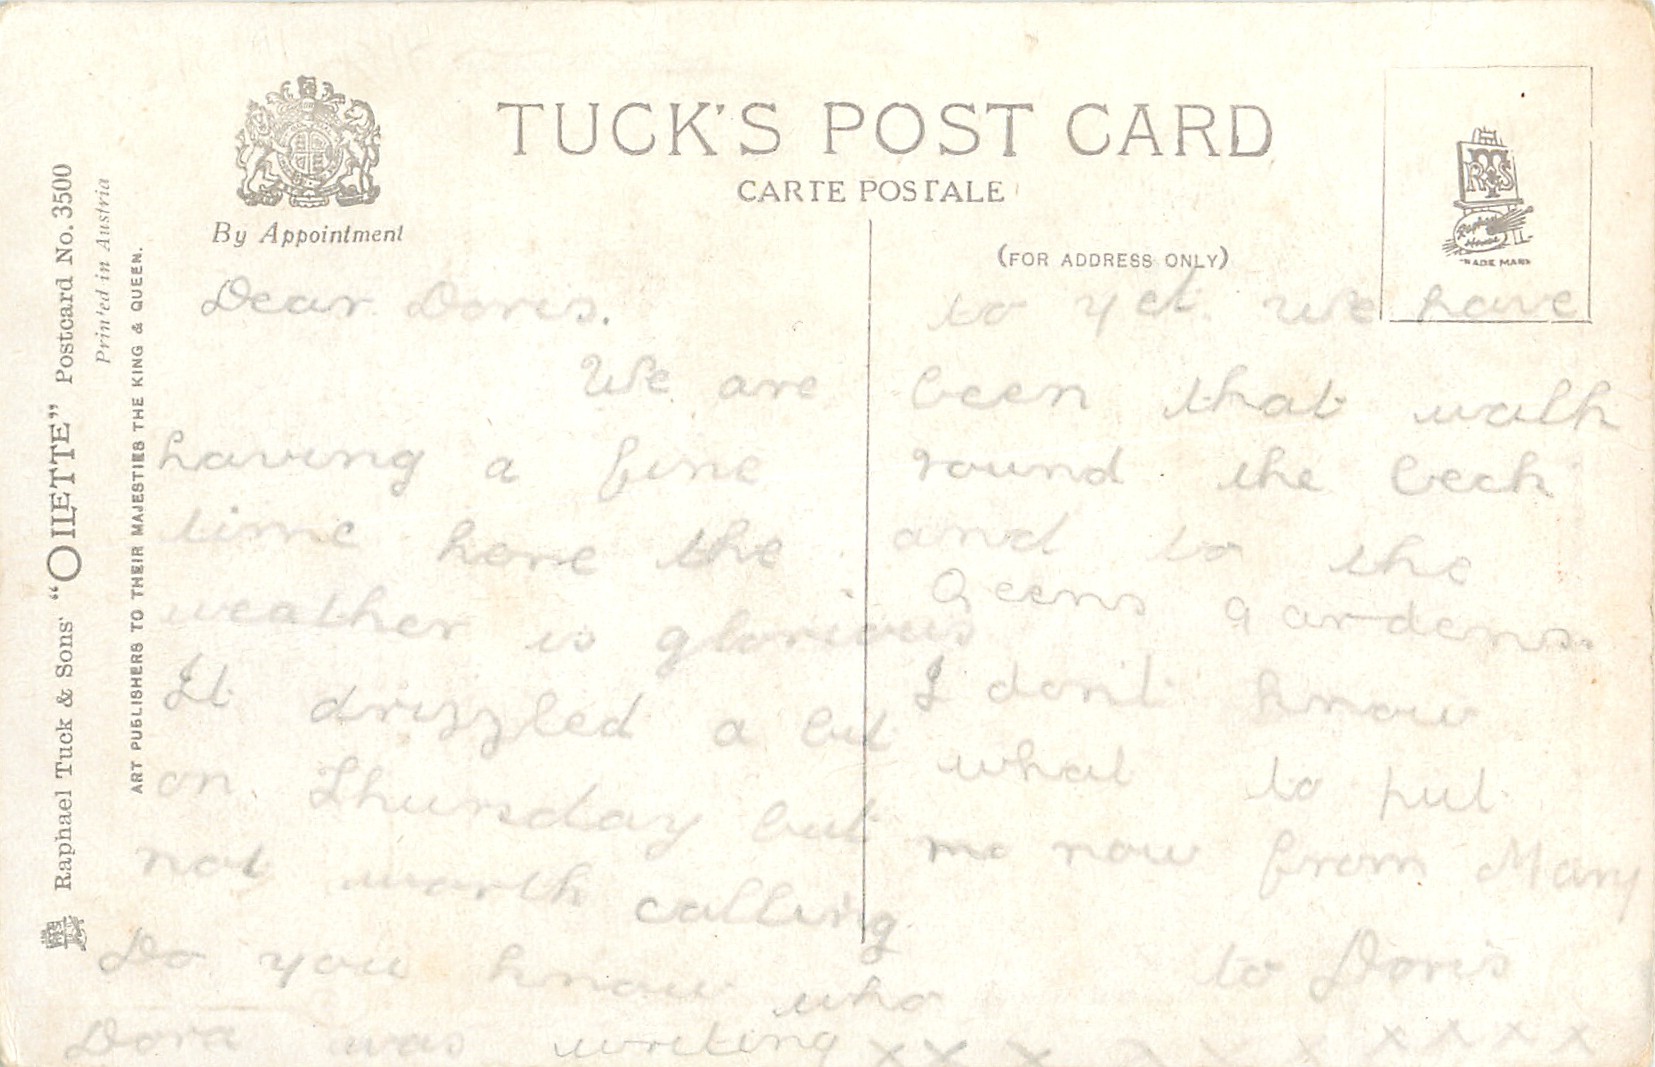 TUCK'S POST CARD
CARTE POSTALE
By Appointment
(FOR ADDRESS ONLY)
RTS
Raphael House
TRADE MARK
Raphael Tuck & Sons' "OILETTE" Postcard No. 3500
Printed in Austria
ART PUBLISHERS TO THEIR MAJESTIES THE KING & QUEEN.
Dear Doris.
We are
having a fine
time here the
weather is glorious
It drizzled a bit
on Thursday but
not worth calling
Do you know who
Dora was writing
to yet. We have
been that walk
round the beck
and to the
Qeens gardens.
I don't know
what to put
now from Mary
to Doris
x x x x x x x x x x